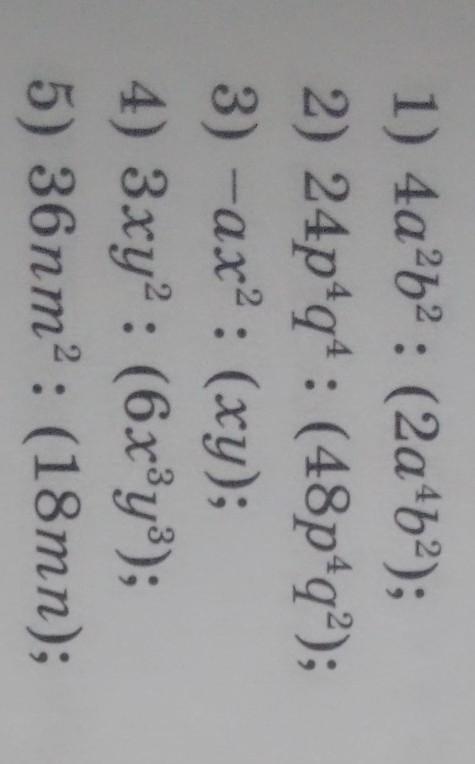 1) 4a²b² : (2a⁴b²);
2) 24p⁴q⁴ : (48p⁴q²);
3) −ax² : (xy);
4) 3xy² : (6x³y³);
5) 36nm² : (18mn);